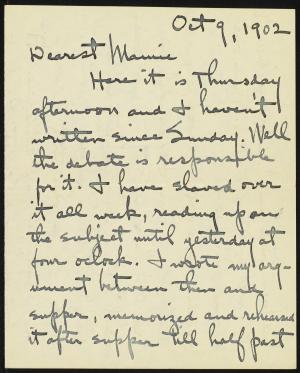 Oct 9, 1902
Dearest Mamie
Here it is Thursday
afternoon and I haven't
written since Sunday. Well
the debate is responsible
for it. I have slaved over
it all week, reading up on
the subject until yesterday at
four oclock. I wrote my arg-
ument between then and
supper, memorized and rehearsed
it after supper till half past